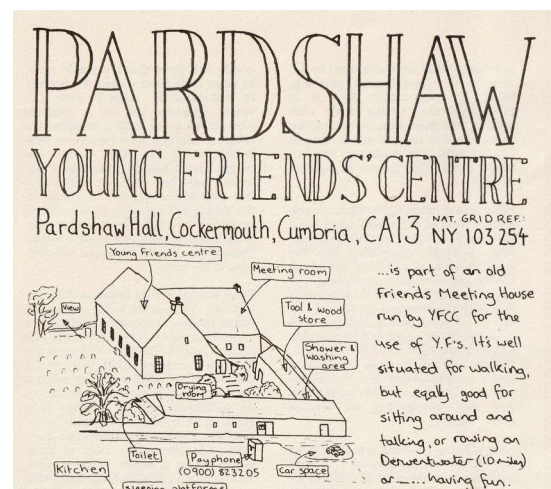 PARDSHAW
YOUNG FRIENDS' CENTRE
Pardshaw Hall, Cockermouth, Cumbria, CA13
NAT. GRID REF.:
NY 103 254
Young Friends centre
Meeting room
View
Tool & wood
store
Shower &
washing
area
Drying
room
Toilet
Pay phone
(0900) 823205
Car space
Kitchen
sleeping platforms
...is part of an old
Friends Meeting House
run by YFCC for the
use of Y.F's. It's well
situated for walking,
but eqally good for
sitting around and
talking, or rowing on
Derwentwater (10 miles)
or......having fun.